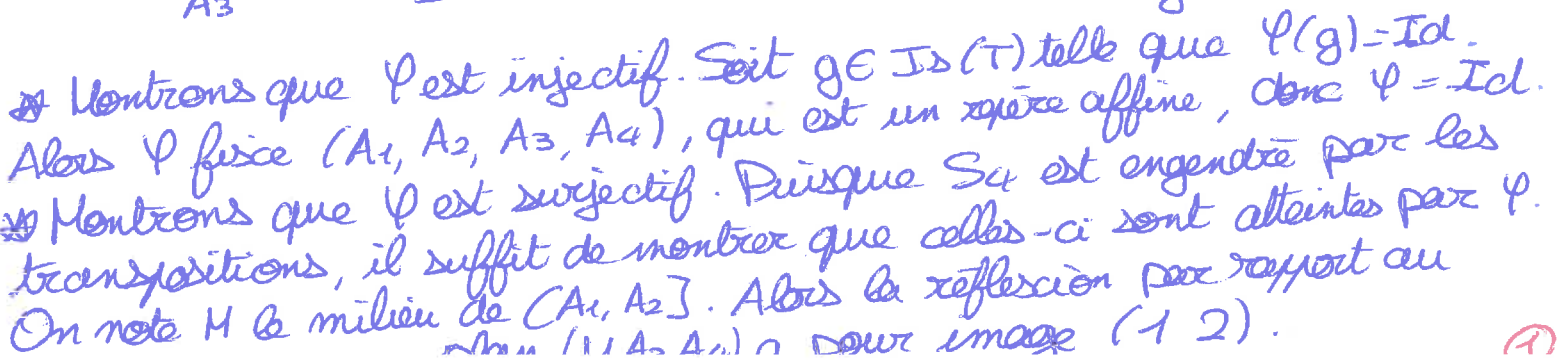 A3
* Montrons que φ est injectif. Soit g ∈ Is(T) telle que φ(g) = Id.
Alors φ fixe (A1, A2, A3, A4), qui est un repère affine, donc φ = Id.
* Montrons que φ est surjectif. Puisque S4 est engendré par les
transpositions, il suffit de montrer que celles-ci sont atteintes par φ.
On note M le milieu de [A1, A2]. Alors la réflexion par rapport au
plan (M A3 A4) a pour image (1 2).
1